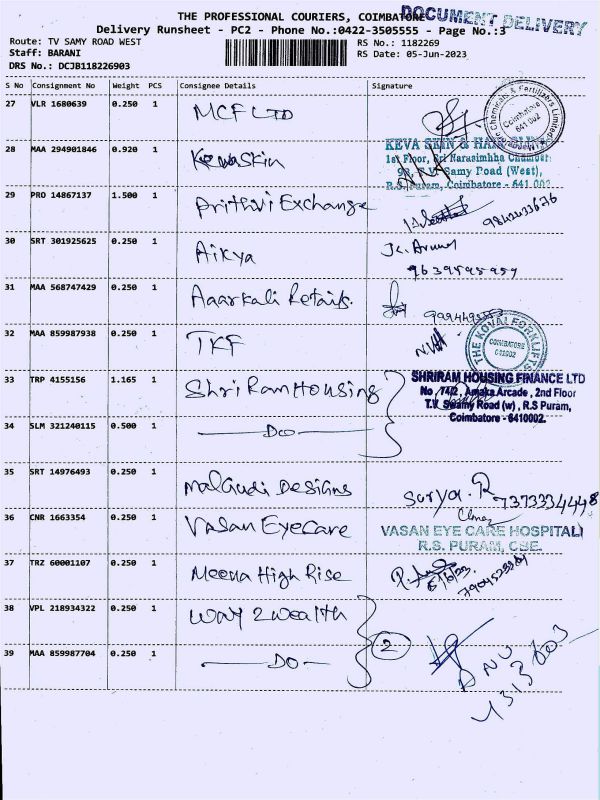 THE PROFESSIONAL COURIERS, COIMBATORE
DOCUMENT DELIVERY
Delivery Runsheet - PC2 - Phone No.:0422-3505555 - Page No.:3
Route: TV SAMY ROAD WEST
RS No.: 1182269
Staff: BARANI
RS Date: 05-Jun-2023
DRS No.: DCJB118226903
S No Consignment No Weight PCS Consignee Details Signature
27 VLR 1680639 0.250 1 MCF LTD
Coimbatore
641 002
28 MAA 294901846 0.920 1 Keva Skin
KEVA SKIN & HAIR
1st Floor, Sri Narasimhha Chamber
Samy Road (West),
R.S. Puram, Coimbatore - 641 002
29 PRO 14867137 1.500 1 Prithvi Exchange
30 SRT 301925625 0.250 1 Aikya
31 MAA 568747429 0.250 1 Aaarkali Retails.
32 MAA 859987938 0.250 1 TKF
THE KOVAI FORKLIFTS
COIMBATORE
641002
33 TRP 4155156 1.165 1 Shri Ram Housing
SHRIRAM HOUSING FINANCE LTD
No 74/2, Amaka Arcade, 2nd Floor
T.V. Swamy Road (w), R.S Puram,
Coimbatore - 6410002.
34 SLM 321240115 0.500 1 Do
35 SRT 14976493 0.250 1 Malgudi Designs
Surya. R
7373334448
36 CNR 1663354 0.250 1 Vasan EyeCare
VASAN EYE CARE HOSPITAL
R.S. PURAM, CBE.
37 TRZ 60001107 0.250 1 Meena High Rise
38 VPL 218934322 0.250 1 Way 2 Wealth
2
39 MAA 859987704 0.250 1 Do